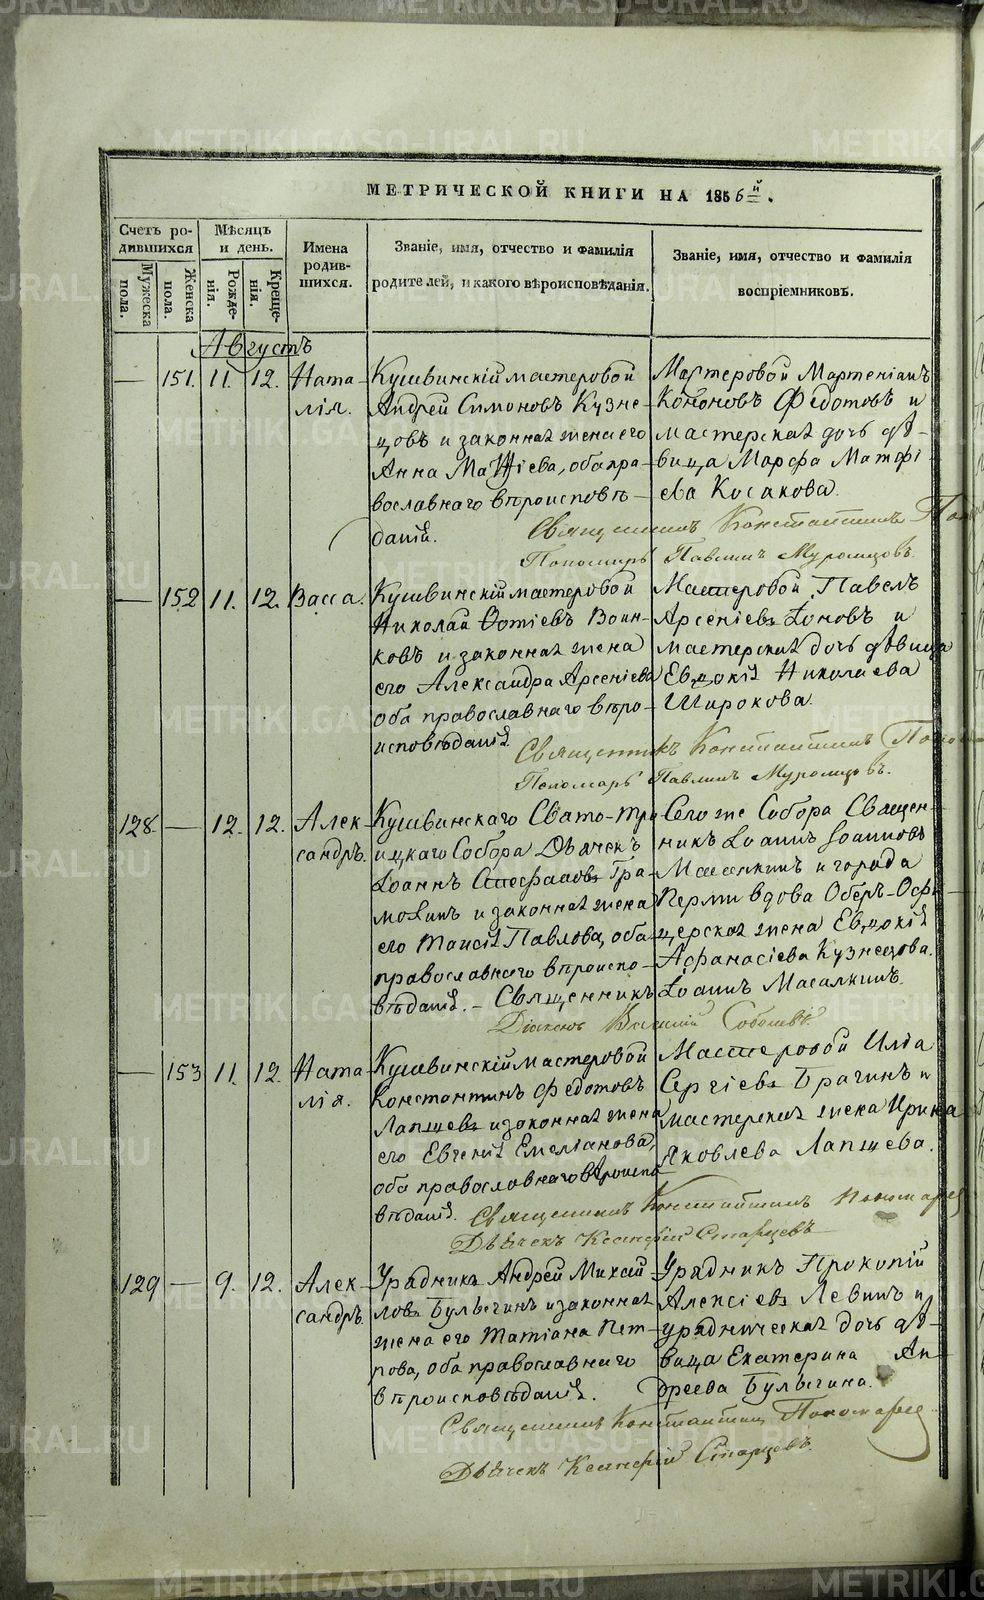 МЕТРИЧЕСКОЙ КНИГИ НА 1856й.
Счетъ ро-
дившихся
Мѣсяцъ
и день.
Мужеска
пола.
Женска
пола.
Рожде-
нія.
Креще-
нія.
Имена
родив-
шихся.
Званіе, имя, отчество и фамилія
родителей, и какого вѣроисповѣданія.
Званіе, имя, отчество и фамилія
воспріемниковъ.
Августъ
— 151. 11. 12. Ната-
лія.
Кушвинскій мастеровой
Андрей Симоновъ Кузне-
цовъ и законная жена его
Анна Матѳіева, оба пра-
вославнаго вѣроисповѣ-
данія.
Мастеровой Мартеніанъ
Кононовъ Федотовъ и
мастерская дочь дѣ-
вица Марфа Матфі-
ева Косакова.
Священникъ Константинъ
Пономарь Павлинъ Муромцовъ.
— 152 11. 12. Васса.
Кушвинскій мастеровой
Николай Фотіевъ Воин-
ковъ и законная жена
его Александра Арсеніева
оба православнаго вѣро-
исповѣданія.
Мастеровой Павелъ
Арсеніевъ Іоновъ и
мастерская дочь дѣвица
Евдокія Николаева
Широкова.
Священникъ Константинъ
Пономарь Павлинъ Муромцовъ.
128. — 12. 12. Алек-
сандръ.
Кушвинскаго Свято-Тро-
ицкаго Собора Дьячекъ
Іоаннъ Стефановъ Гра-
молинъ и законная жена
его Таисія Павлова, оба
православнаго вѣроиспо-
вѣданія. –
Сего же Собора Священ-
никъ Іоаннъ Іоанновъ
Масалкинъ и города
Перми вдова Оберъ-Офи-
церская жена Евдокія
Афанасіева Кузнецова.
Священникъ Іоаннъ Масалкинъ.
Діаконъ Василій
— 153 11. 12. Ната-
лія.
Кушвинскій мастеровой
Константинъ Федотовъ
Лапшевъ и законная жена
его Евгенія Емеліанова,
оба православнаго вѣроиспо-
вѣданія.
Мастеровой Илія
Сергіевъ Брагинъ и
мастерская жена Ирина
Яковлева Лапшева.
Священникъ Константинъ Пономарев
Дьячекъ Ксенофій Старцевъ
129 — 9. 12. Алек-
сандръ.
Урядникъ Андрей Михай-
ловъ Булыгинъ и законная
жена его Татіана Пет-
рова, оба православнаго
вѣроисповѣданія.
Урядникъ Прокопій
Алексіевъ Левинъ и
урядническая дочь дѣ-
вица Екатерина Ан-
дреева Булыгина.
Священникъ Константинъ Пономарев
Дьячекъ Ксенофій Старцевъ.
METRIKI.GASO-URAL.RU